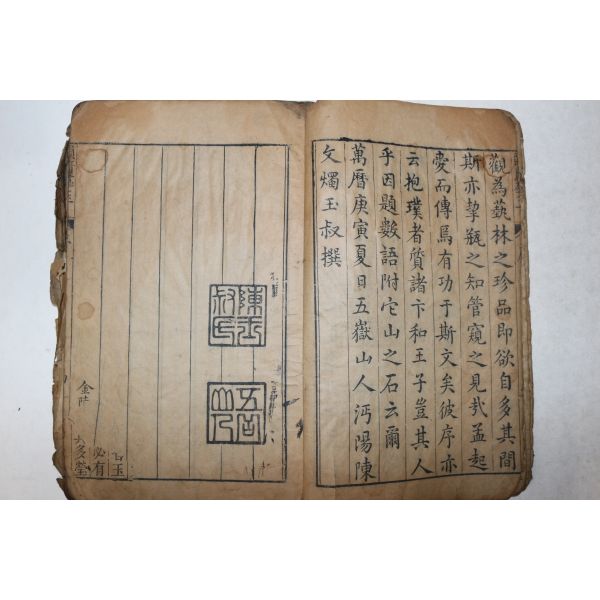 觀為蓺林之珍品即欲自多其間
斯亦挈瓶之知管窺之見㢤孟起
愛而傳焉有功于斯文矣彼序亦
云抱璞者質諸卞和王子豈其人
乎因題數語附它山之石云爾
萬曆庚寅夏日五嶽山人沔陽陳
文燭玉叔撰
陳玉
叔氏
玉
必有
多瑩
金